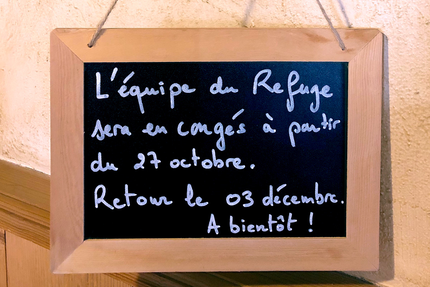 L'équipe du Refuge
sera en congés à partir
du 27 octobre.
Retour le 03 décembre.
A bientôt !